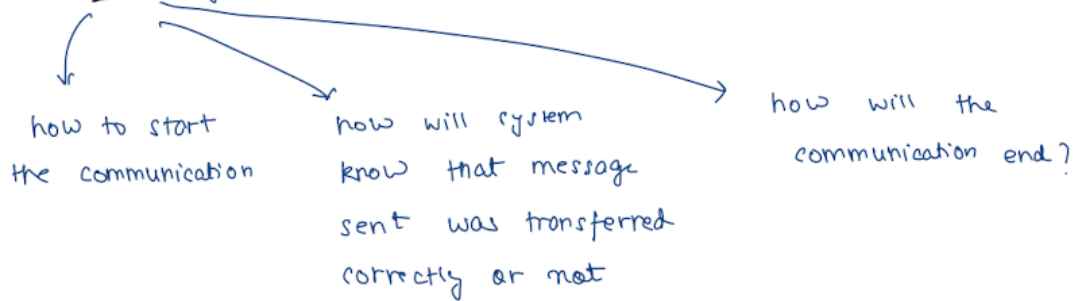 how to start
the communication
how will system
know that message
sent was transferred
correctly or not
how will the
communication end?